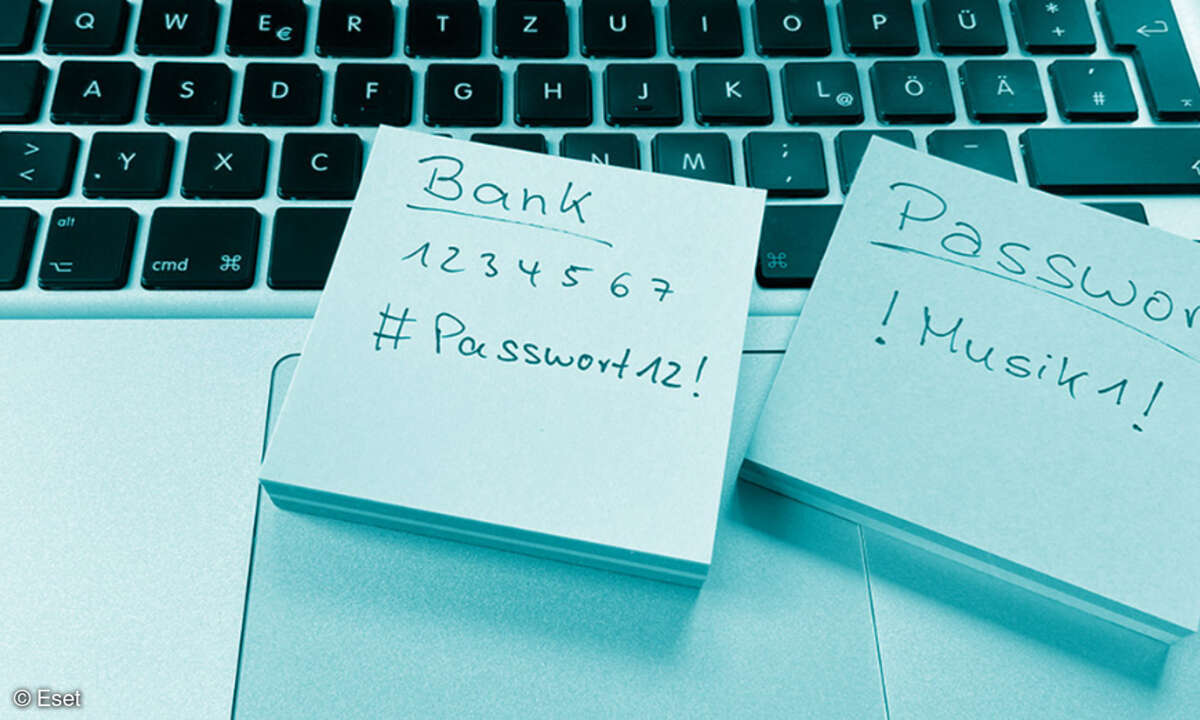 Q W E € R T Z U I O P Ü * +
A S D F G H J K L @ Ö Ä ' #
> < Y X C N M ; , _
alt cmd ⌘ ⌘
Bank
1234567
#Passwort12!
Passwor
!Musik1!
© Eset